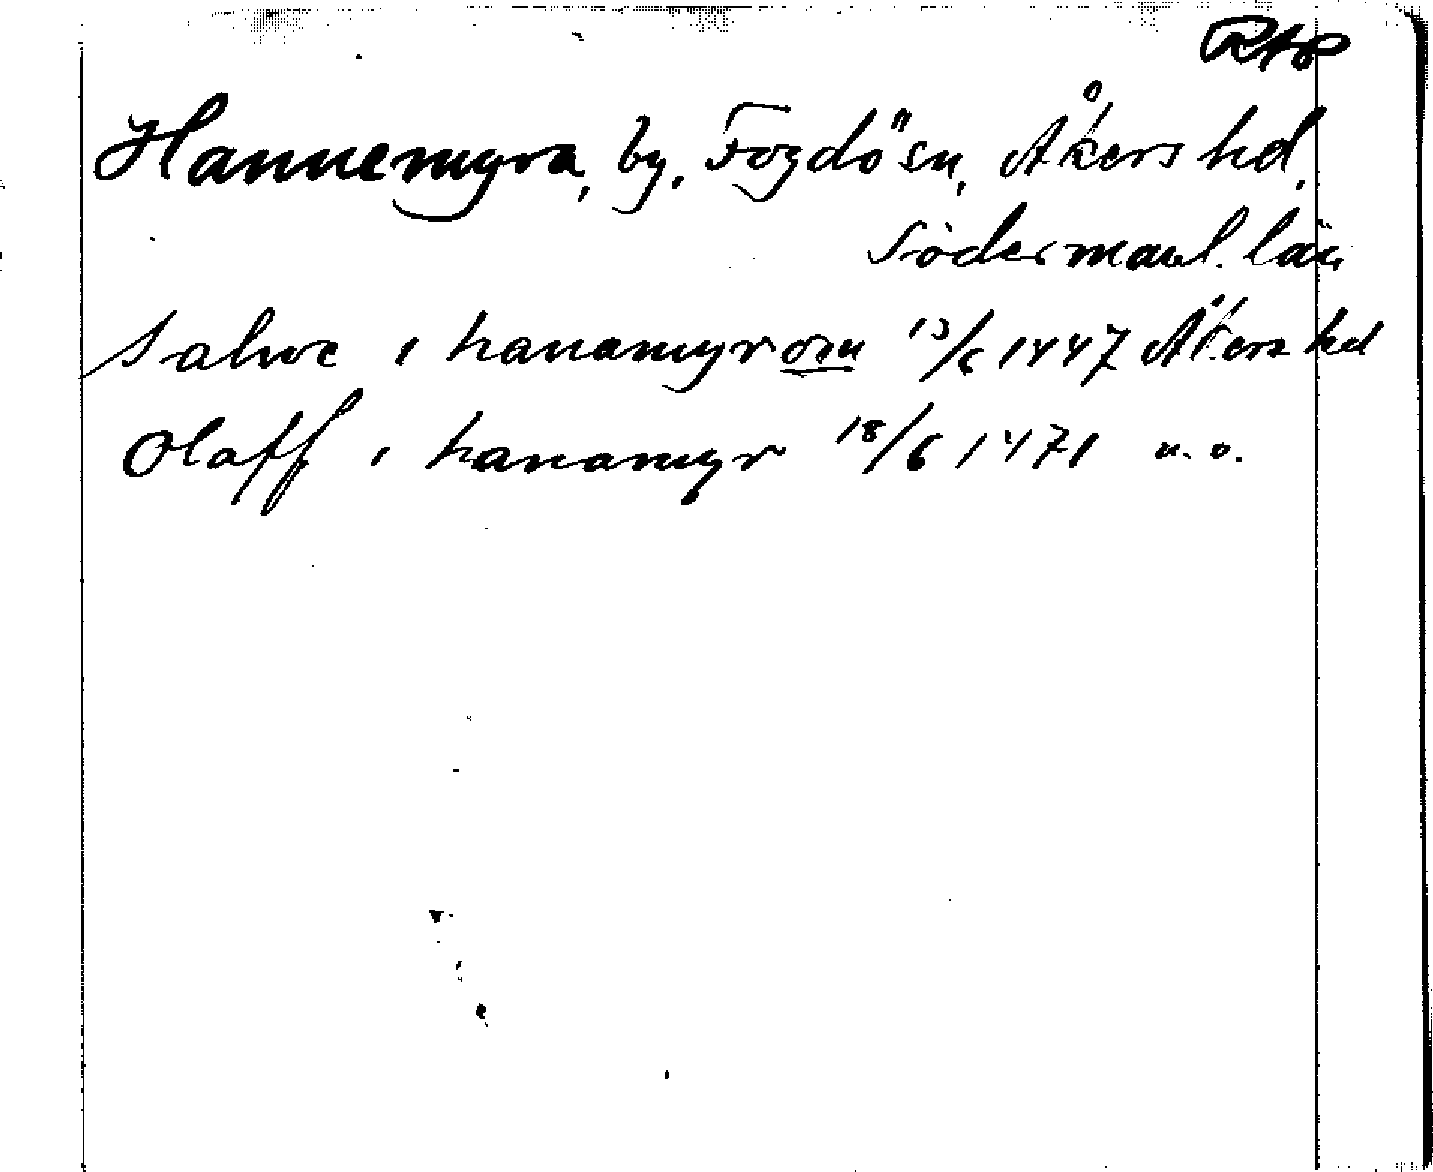 RAP
Hannemyra, by, Fogdö sn, Åkers hd,
Södermanl. län
Salwe i hanamyrom 13/6 1447 Åkers hd
Olaff i hanamyr 18/6 1471 u. o.